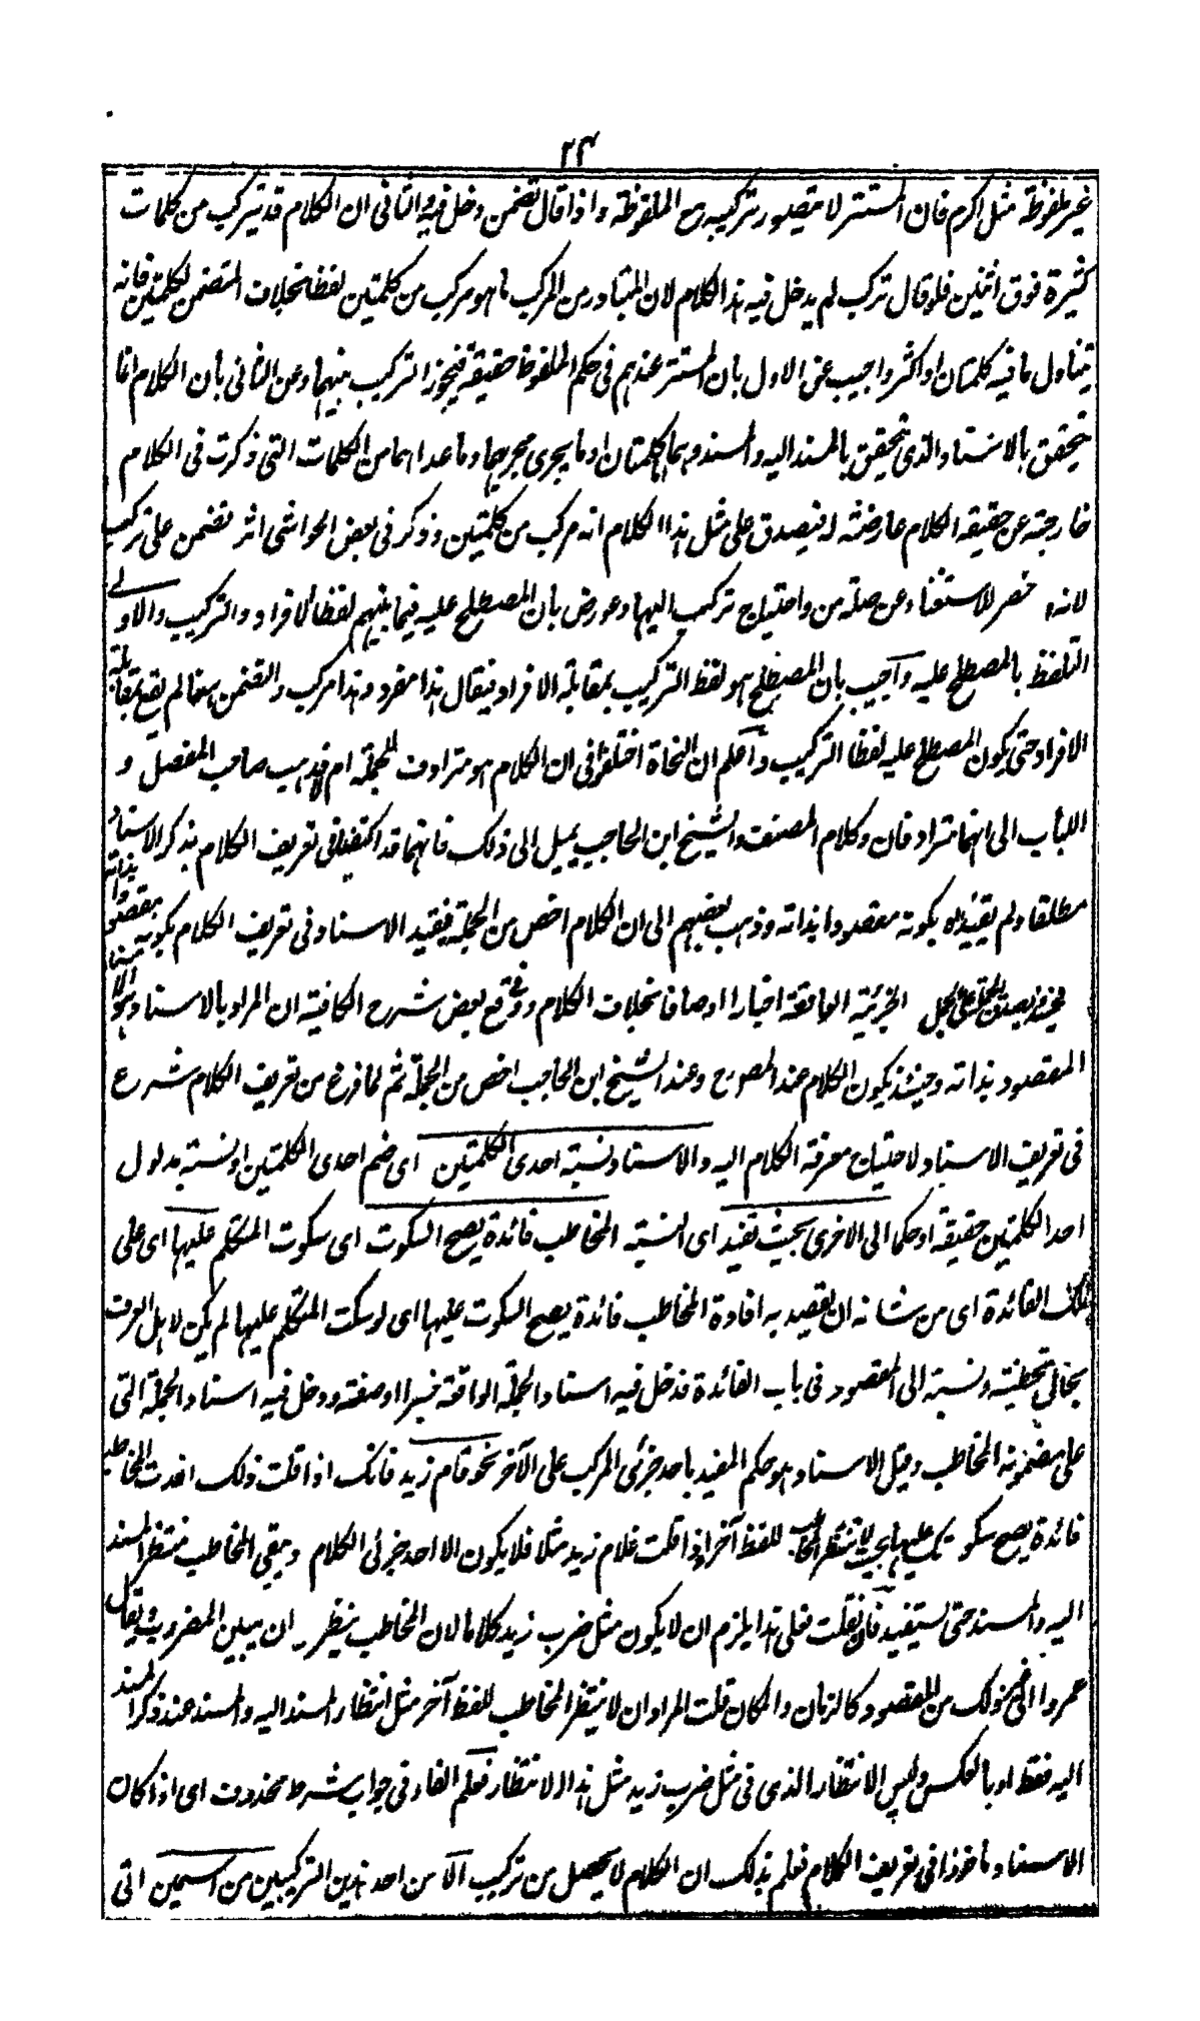 ٢٣
غير ملفوظة مثل اكرم فان المستتر لا يتصور تركيبه مع الملفوظة واذا قال تضمن دخل فيه والثانى ان الكلام قد يتركب من كلمات
كثيرة فوق اثنين فلو قال تركب لم يدخل فيه هذا الكلام لان المتبادر من المركب ما هو مركب من كلمتين لفظا بخلاف المتضمن لكلمتين فانه
يتناول ما فيه كلمتان او اكثر واجيب عن الاول بان المستتر عندهم فى حكم الملفوظ حقيقة فيجوز التركيب بينهما وعن الثانى بان الكلام انما
يتحقق بالاسناد والذى يتحقق بالمسند اليه والمسند وهما كلمتان او ما يجرى مجريهما وما عداهما من الكلمات التى ذكرت فى الكلام
خارجة عن حقيقة الكلام عارضة له فيصدق على مثل هذا الكلام انه مركب من كلمتين وذكر فى بعض الحواشى اثر تضمن على تركب
لانه اخصر للاستغناء عن صلة من واحتياج تركب اليها وعورض بان المصطلح عليه فيما بينهم لفظ الافراد والتركيب والاولى
التلفظ بالمصطلح عليه واجيب بان المصطلح هو لفظ التركيب بمقابلة الافراد فيقال هذا مفرد وهذا مركب والتضمن ههنا لم يقع بمقابلة
الافراد حتى يكون المصطلح عليه لفظ التركيب واعلم ان النحاة اختلفوا فى ان الكلام هو مترادف للجملة ام لا فذهب صاحب المفصل و
اللباب الى انهما مترادفان وكلام المصنف والشيخ ابن الحاجب يميل الى ذلك فانهما قد اكتفيا فى تعريف الكلام بذكر الاسناد
مطلقا ولم يقيداه بكونه مقصودا لذاته وذهب بعضهم الى ان الكلام اخص من الجملة فيقيد الاسناد فى تعريف الكلام بكونه مقصودا لذاته
فحينئذ يصدق الجملة على الجمل الخبرية الواقعة اخبارا او صافا بخلاف الكلام ووقع فى بعض شرح الكافية ان المراد بالاسناد هو الاسناد
المقصود لذاته وحينئذ يكون الكلام عند المصنف وعند الشيخ ابن الحاجب اخص من الجملة ثم لما فرغ من تعريف الكلام شرع
فى تعريف الاسناد لاحتياج معرفة الكلام اليه والاسناد نسبة احدى الكلمتين اى ضم احدى الكلمتين او نسبة مدلول
احد الكلمتين حقيقة او حكما الى الاخرى بحيث تفيد اى النسبة المخاطب فائدة يصح السكوت اى سكوت المتكلم عليها اى على
تلك الفائدة اى من شانه ان يقصد به افادة المخاطب فائدة يصح السكوت عليها اى لو سكت المتكلم عليها لم يكن لاهل العرف
مجال تخطئته ونسبته الى القصور فى باب الفائدة فدخل فيه اسناد الجملة الواقعة خبرا او صفة ودخل فيه اسناد الجملة التى
علم مضمونها المخاطب وقيل الاسناد هو حكم المفيد باحد جزئى المركب على الآخر نحو قام زيد فانك اذا قلت ذلك افدت المخاطب
فائدة يصح سكوتك عليها بحيث لا ينتظر المخاطب للفظ آخر اذا قلت غلام زيد مثلا فلا يكون الا احد جزئى الكلام ويبقى المخاطب منتظرا للمسند
اليه والمسند حتى يستفيد فان قلت فعلى هذا يلزم ان لا يكون مثل ضرب زيد كلاما لان المخاطب ينتظر ان يبين المضروب ويقال
عمروا الى غير ذلك من القصود كالزمان والمكان قلت المراد ان لا ينتظر المخاطب للفظ آخر مثل انتظار المسند اليه والمسند عند ذكر المسند
اليه فقط او بالعكس وليس الانتظار الذى فى مثل ضرب زيد مثل هذا الانتظار فعلم الفاء فى جواب شرط محذوف اى اذا كان
الاسناد ماخوذا فى تعريف الكلام فعلم بذلك ان الكلام لا يحصل من تركيب الا من احد هذين التركيبين من اسمين اتى